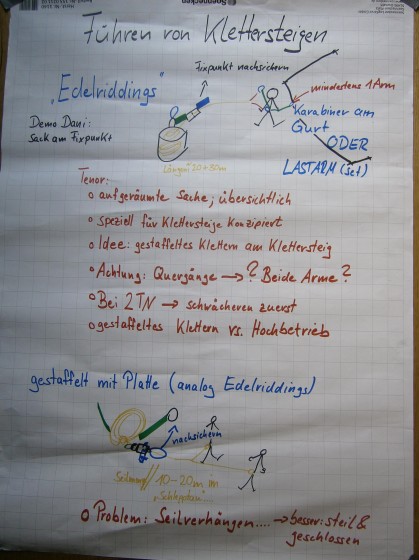 Soennecken
Führen von Klettersteigen
Fixpunkt nachsichern
"Edelriddings"
mindestens 1 Arm
Demo Dani:
Sack am Fixpunkt
Karabiner am
Gurt
ODER
LASTARM (Set)
Längen 20+30m
Tenor:
aufgeräumte Sache; übersichtlich
speziell für Klettersteige konzipiert
Idee: gestaffeltes Klettern am Klettersteig
Achtung: Quergänge → ? Beide Arme ?
Bei 2TN → schwächeren zuerst
gestaffeltes Klettern vs. Hochbetrieb
gestaffelt mit Platte (analog Edelriddings)
nachsichern
10-20m im
Problem: Seilverhängen.... → besser: steil &
geschlossen